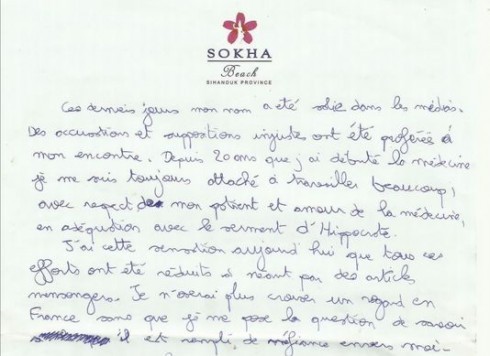 SOKHA
Beach
SIHANOUK PROVINCE
Ces derniers jours mon nom a été salie dans les médias.
Des accusations et suppositions injustes ont été proférés à
mon encontre. Depuis 20 ans que j'ai débuté la médecine
je me suis toujours attaché à travailler beaucoup,
avec respect de mon patient et amour de la médecine,
en adéquation avec le serment d'Hippocrate.
J'ai cette sensation aujourd'hui que tous ces
efforts ont été réduits à néant par des articles
mensongers. Je n'oserai plus croiser un regard en
France sans que je me pose la question de savoir
il est rempli de méfiance envers moi-